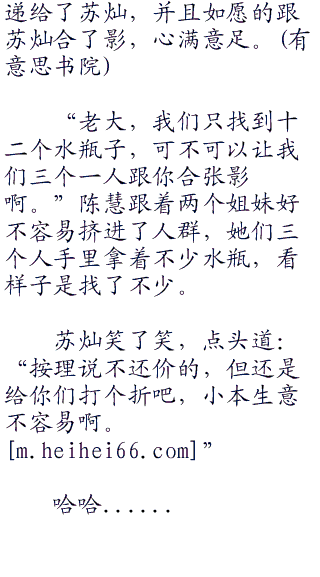 递给了苏灿，并且如愿的跟
苏灿合了影，心满意足。(有
意思书院)
“老大，我们只找到十
二个水瓶子，可不可以让我
们三个一人跟你合张影
啊。”陈慧跟着两个姐妹好
不容易挤进了人群，她们三
个人手里拿着不少水瓶，看
样子是找了不少。
苏灿笑了笑，点头道：
“按理说不还价的，但还是
给你们打个折吧，小本生意
不容易啊。
[m.heihei66.com]”
哈哈......